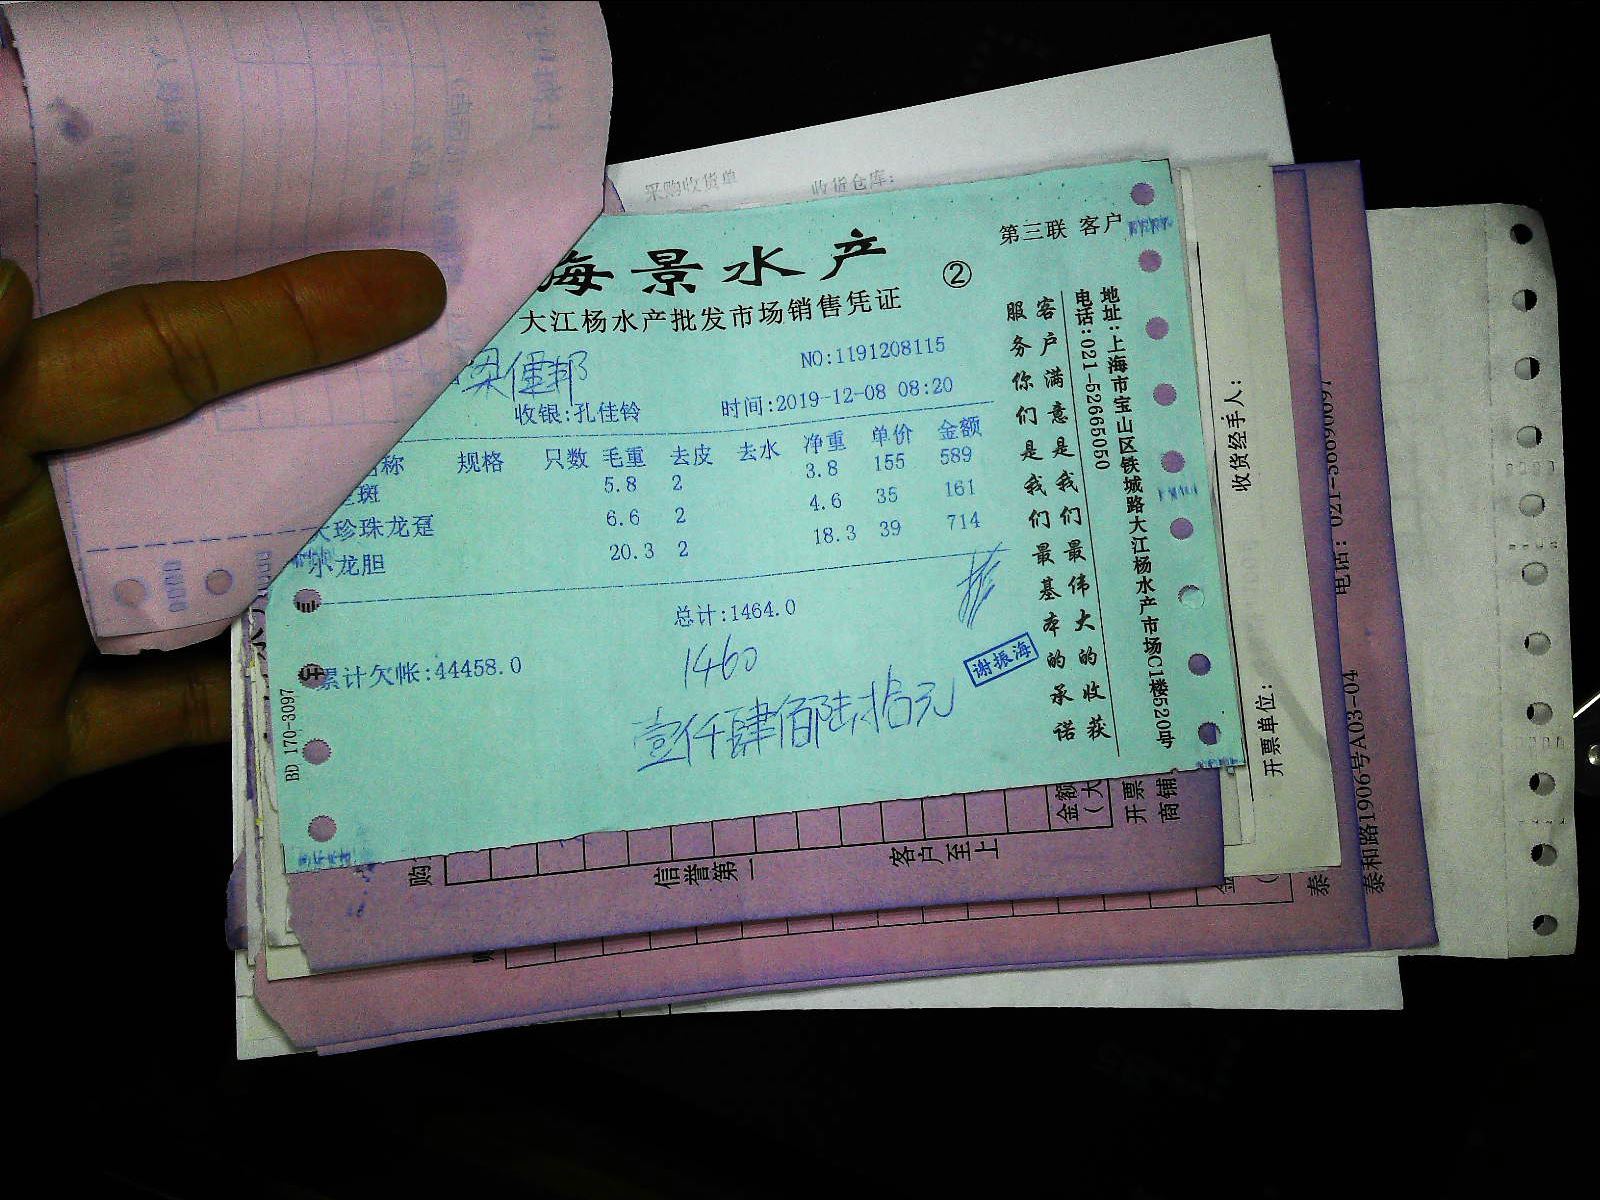 采购收货单 收货仓库:
第三联 客户
海景水产 ②
大江杨水产批发市场销售凭证
NO:1191208115
收银:孔佳铃 时间:2019-12-08 08:20
名称 规格 只数 毛重 去皮 去水 净重 单价 金额
斑 5.8 2 3.8 155 589
大珍珠龙趸 6.6 2 4.6 35 161
小龙胆 20.3 2 18.3 39 714
总计:1464.0
累计欠帐:44458.0
1460
壹仟肆佰陆拾元
谢振海
客户满意是我们最伟大的收获
服务你们是我们最基本的承诺
地址:上海市宝山区铁城路大江杨水产市场C1楼520号
电话:021-52665050
BD 170-3097
收货经手人:
开票单位:
电话: 021-56690097
泰和路1906号A03-04
信誉第一
客户至上
金额
(大
开票
商铺
购
泰